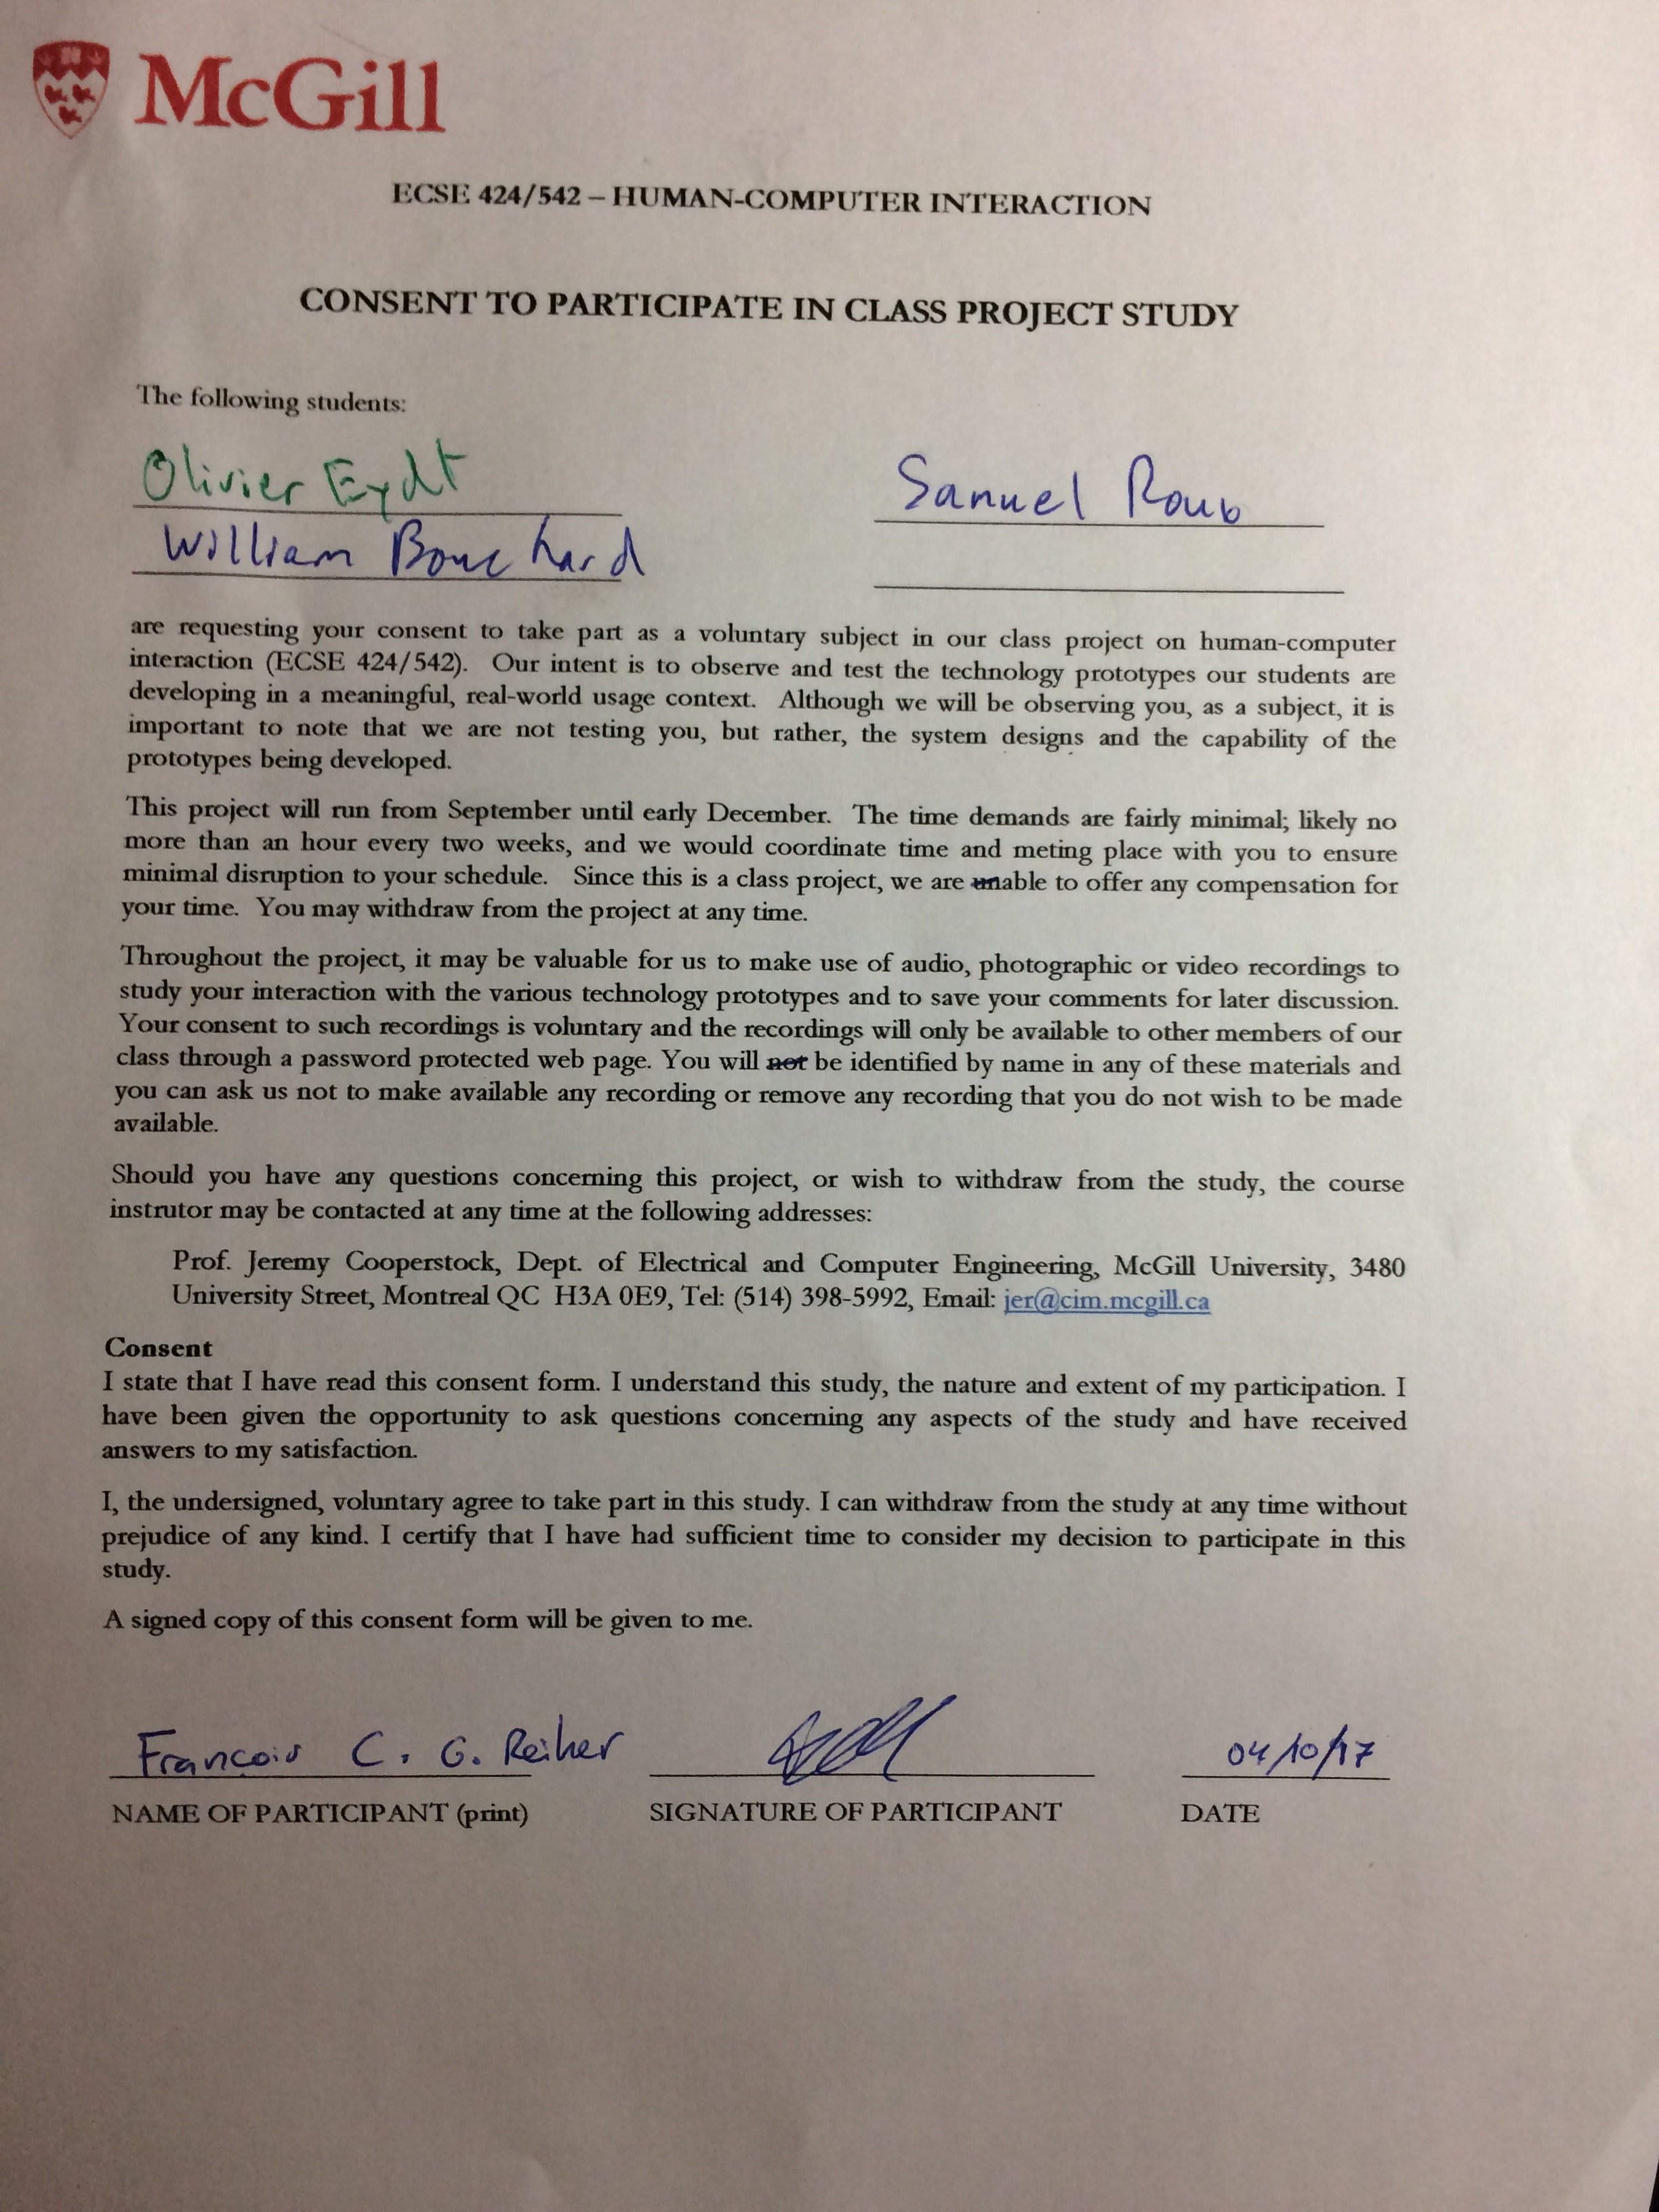 McGill
ECSE 424/542 – HUMAN-COMPUTER INTERACTION
CONSENT TO PARTICIPATE IN CLASS PROJECT STUDY
The following students:
Olivier Eydt
Samuel Roub
William Bouchard
are requesting your consent to take part as a voluntary subject in our class project on human-computer
interaction (ECSE 424/542). Our intent is to observe and test the technology prototypes our students are
developing in a meaningful, real-world usage context. Although we will be observing you, as a subject, it is
important to note that we are not testing you, but rather, the system designs and the capability of the
prototypes being developed.
This project will run from September until early December. The time demands are fairly minimal; likely no
more than an hour every two weeks, and we would coordinate time and meting place with you to ensure
minimal disruption to your schedule. Since this is a class project, we are unable to offer any compensation for
your time. You may withdraw from the project at any time.
Throughout the project, it may be valuable for us to make use of audio, photographic or video recordings to
study your interaction with the various technology prototypes and to save your comments for later discussion.
Your consent to such recordings is voluntary and the recordings will only be available to other members of our
class through a password protected web page. You will not be identified by name in any of these materials and
you can ask us not to make available any recording or remove any recording that you do not wish to be made
available.
Should you have any questions concerning this project, or wish to withdraw from the study, the course
instrutor may be contacted at any time at the following addresses:
Prof. Jeremy Cooperstock, Dept. of Electrical and Computer Engineering, McGill University, 3480
University Street, Montreal QC H3A 0E9, Tel: (514) 398-5992, Email: jer@cim.mcgill.ca
Consent
I state that I have read this consent form. I understand this study, the nature and extent of my participation. I
have been given the opportunity to ask questions concerning any aspects of the study and have received
answers to my satisfaction.
I, the undersigned, voluntary agree to take part in this study. I can withdraw from the study at any time without
prejudice of any kind. I certify that I have had sufficient time to consider my decision to participate in this
study.
A signed copy of this consent form will be given to me.
Francois C. G. Reiher
04/10/17
NAME OF PARTICIPANT (print)
SIGNATURE OF PARTICIPANT
DATE